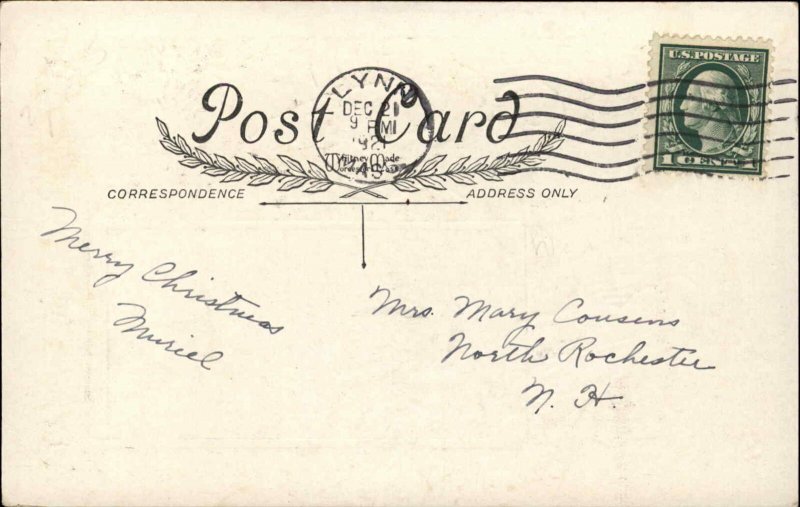 U.S. POSTAGE
1 CENT 1
LYNN
DEC 21
9 PM
1921
MASS
Post Card
Whitney Made
Worcester, Mass
CORRESPONDENCE
ADDRESS ONLY
Merry Christmas
Muriel
Mrs. Mary Cousens
North Rochester
N. H.